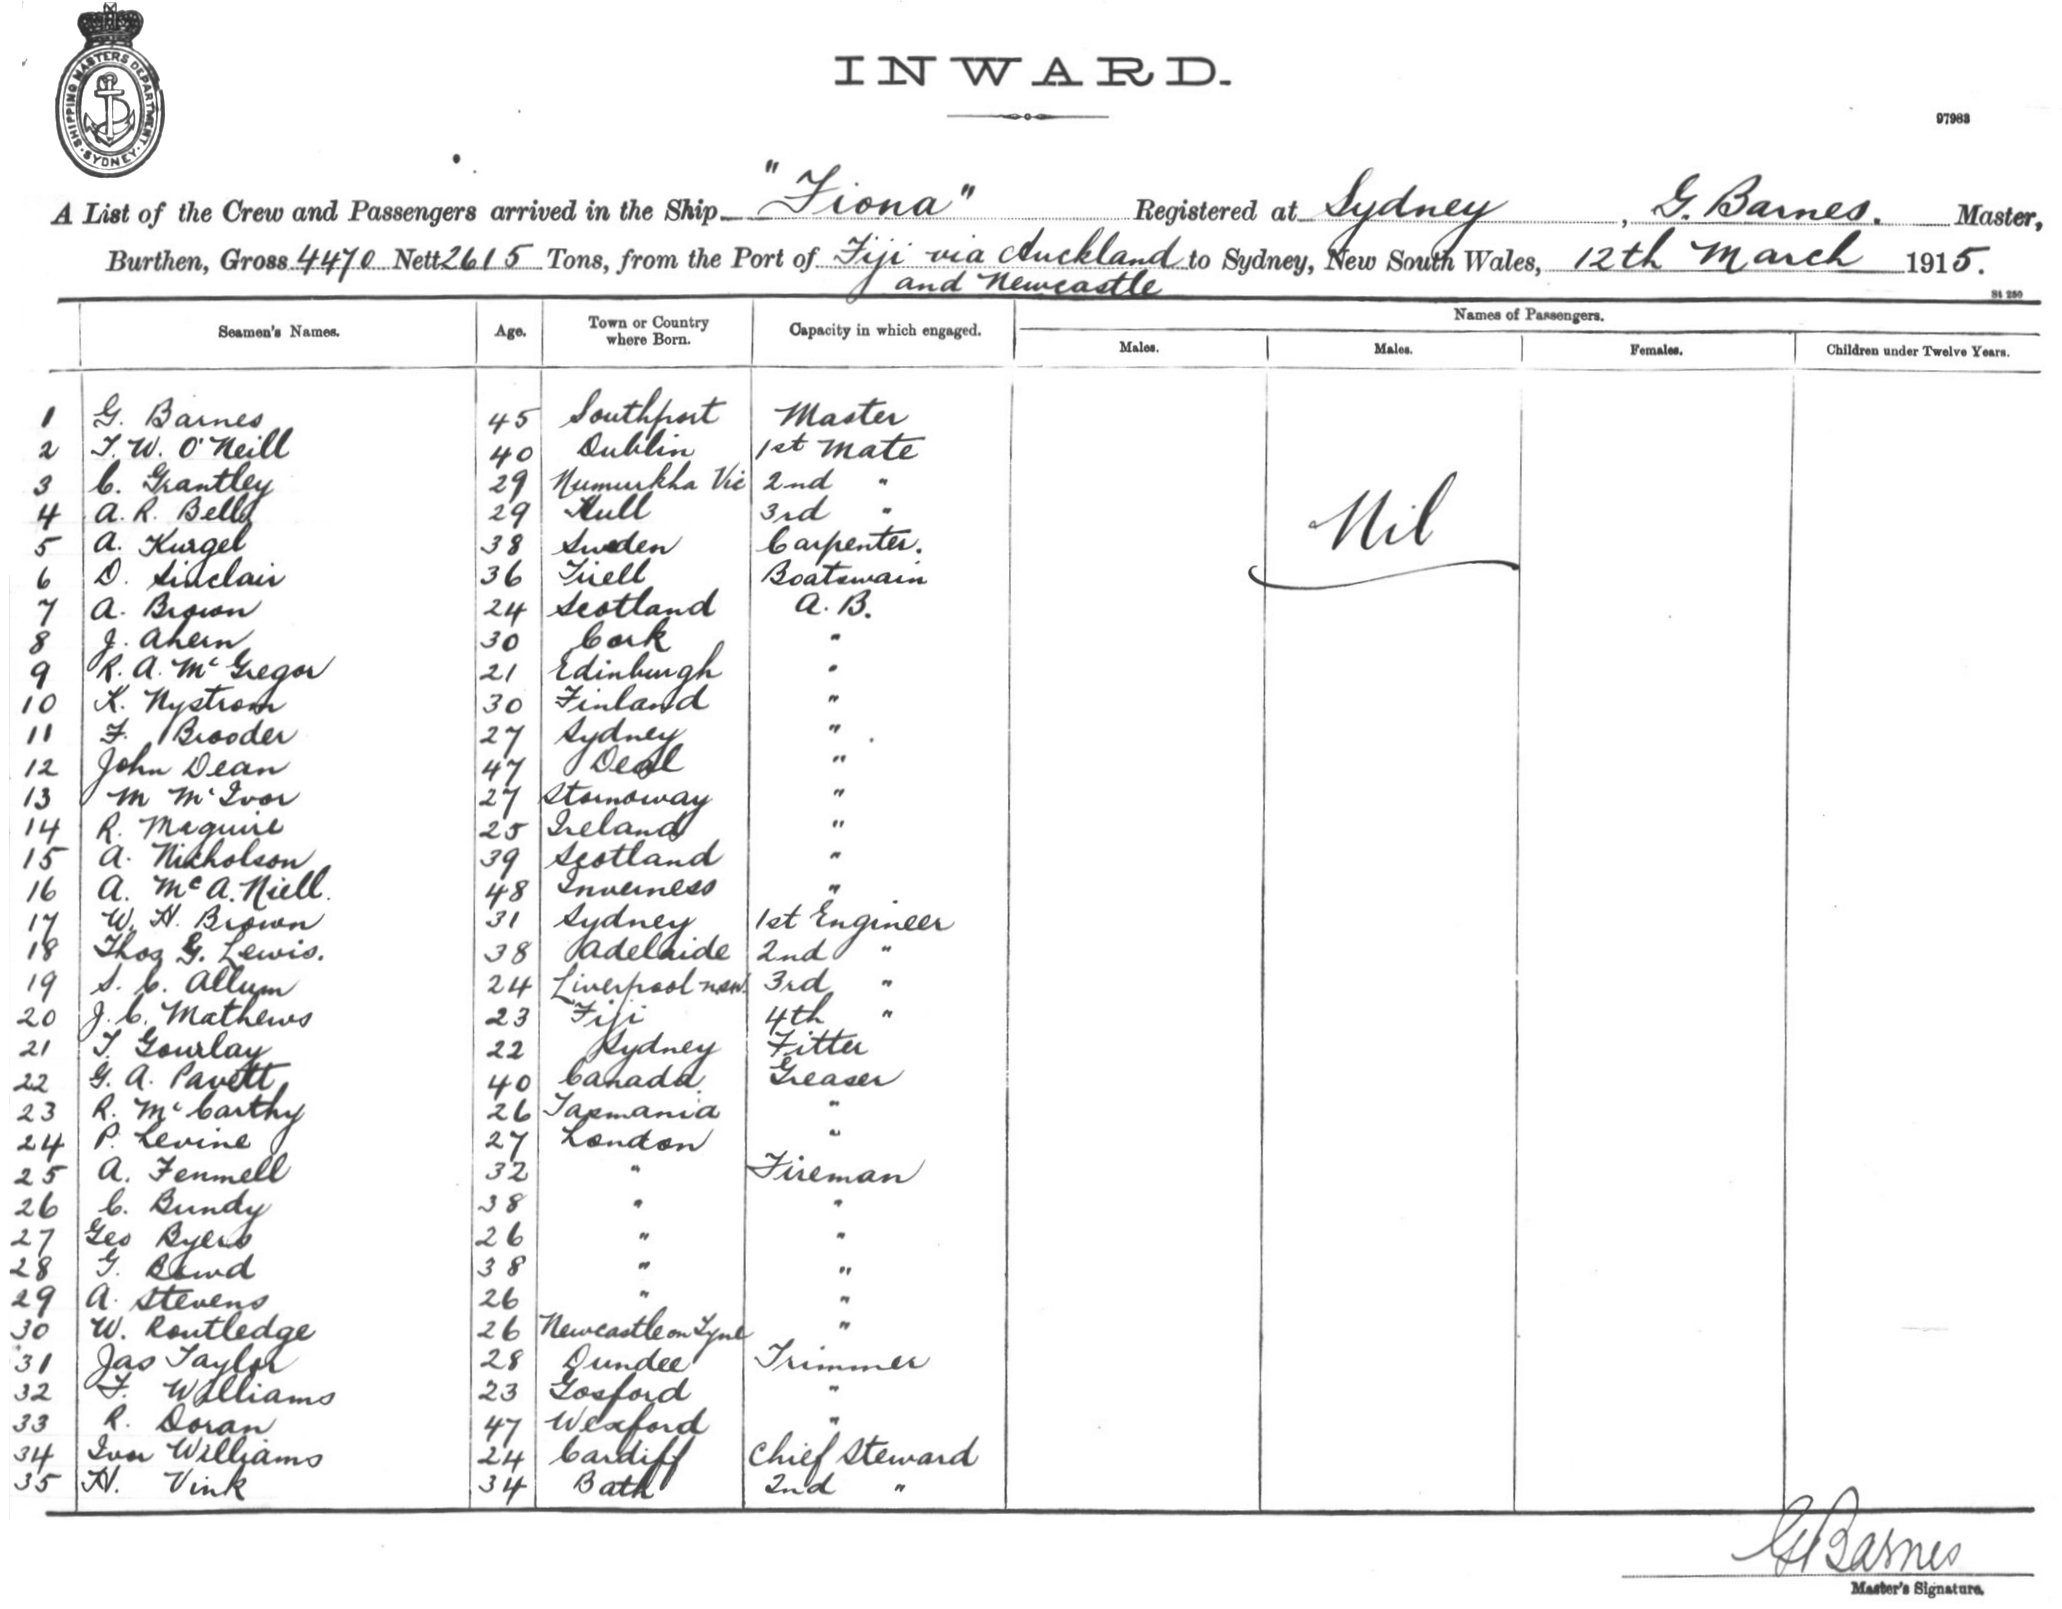 SHIPPING MASTERS DEPARTMENT. SYDNEY.
INWARD.
97983
A List of the Crew and Passengers arrived in the Ship "Fiona" Registered at Sydney, G. Barnes. Master,
Burthen, Gross 4470 Nett 2615 Tons, from the Port of Fiji via Auckland to Sydney, New South Wales, 12th March 1915.
and Newcastle
St 250
Seamen's Names. Age. Town or Country where Born. Capacity in which engaged. Names of Passengers.
Males. Males. Females. Children under Twelve Years.
1 G. Barnes 45 Southport Master
2 T. W. O'Neill 40 Dublin 1st Mate
3 C. Grantley 29 Numurkha Vic 2nd "
4 A. R. Bell 29 Hull 3rd "
Nil
5 A. Kurgel 38 Sweden Carpenter.
6 D. Sinclair 36 Tirell Boatswain
7 A. Brown 24 Scotland A. B.
8 J. Ahern 30 Cork "
9 R. A. McGregor 21 Edinburgh "
10 K. Nystrom 30 Finland "
11 F. Brooder 27 Sydney "
12 John Dean 47 Deal "
13 M McIvor 27 Stornoway "
14 R. Maguire 25 Ireland "
15 A. Nicholson 39 Scotland "
16 A. McA. Niell. 48 Inverness "
17 W. H. Brown 31 Sydney 1st Engineer
18 Thos G. Lewis. 38 Adelaide 2nd "
19 S. C. Allum 24 Liverpool nsw. 3rd "
20 J. C. Mathews 23 Fiji 4th "
21 T. Gourlay 22 Sydney Fitter
22 G. A. Pavett 40 Canada. Greaser
23 R. McCarthy 26 Tasmania "
24 P. Levine 27 London "
25 A. Fenmell 32 " Fireman
26 C. Bundy 38 " "
27 Geo Byers 26 " "
28 G. 38 " "
29 A. Stevens 26 " "
30 W. Routledge 26 Newcastle on Tyne "
31 Jas Taylor 28 Dundee Trimmer
32 F. Williams 23 Gosford "
33 R. Doran 47 Wexford "
34 Ivor Williams 24 Cardiff Chief Steward
35 H. Vink 34 Bath 2nd "
G Barnes
Master's Signature.